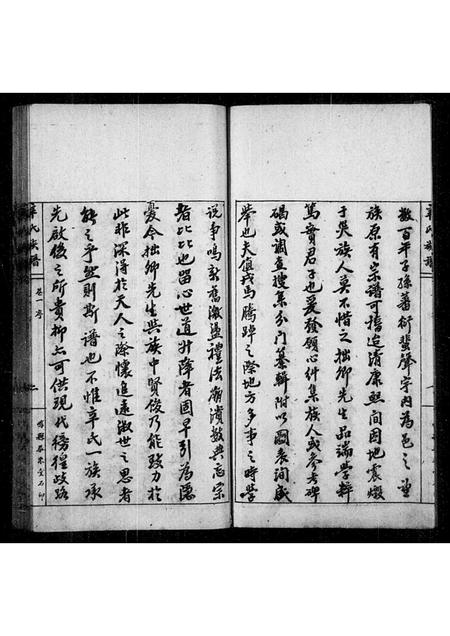 辛氏族譜
數百年子孫蕃衍蜚聲宇內為邑之望
族原有宗譜可稽迨清康熙間因地震燬
于災族人莫不惜之拙卿先生品端學粹
篤實君子也爰發願心佧集族人或參考碑
碣或調查搜集分門纂輯附以圖表洵盛
舉也夫值戎馬騰踔之際地方多事之時學
說爭鳴新舊激盪禮法崩潰數典忘宗
者比比也留心世道升降者固早引為隱
憂今拙卿先生與族中賢俊乃能致力於
此非深得於天人之際懷追遠淑世之思者
能之乎然則斯譜也不惟辛氏一族承
先啟後之所貴抑亦可供現代徬徨歧路
辛氏族譜
卷一序
石印